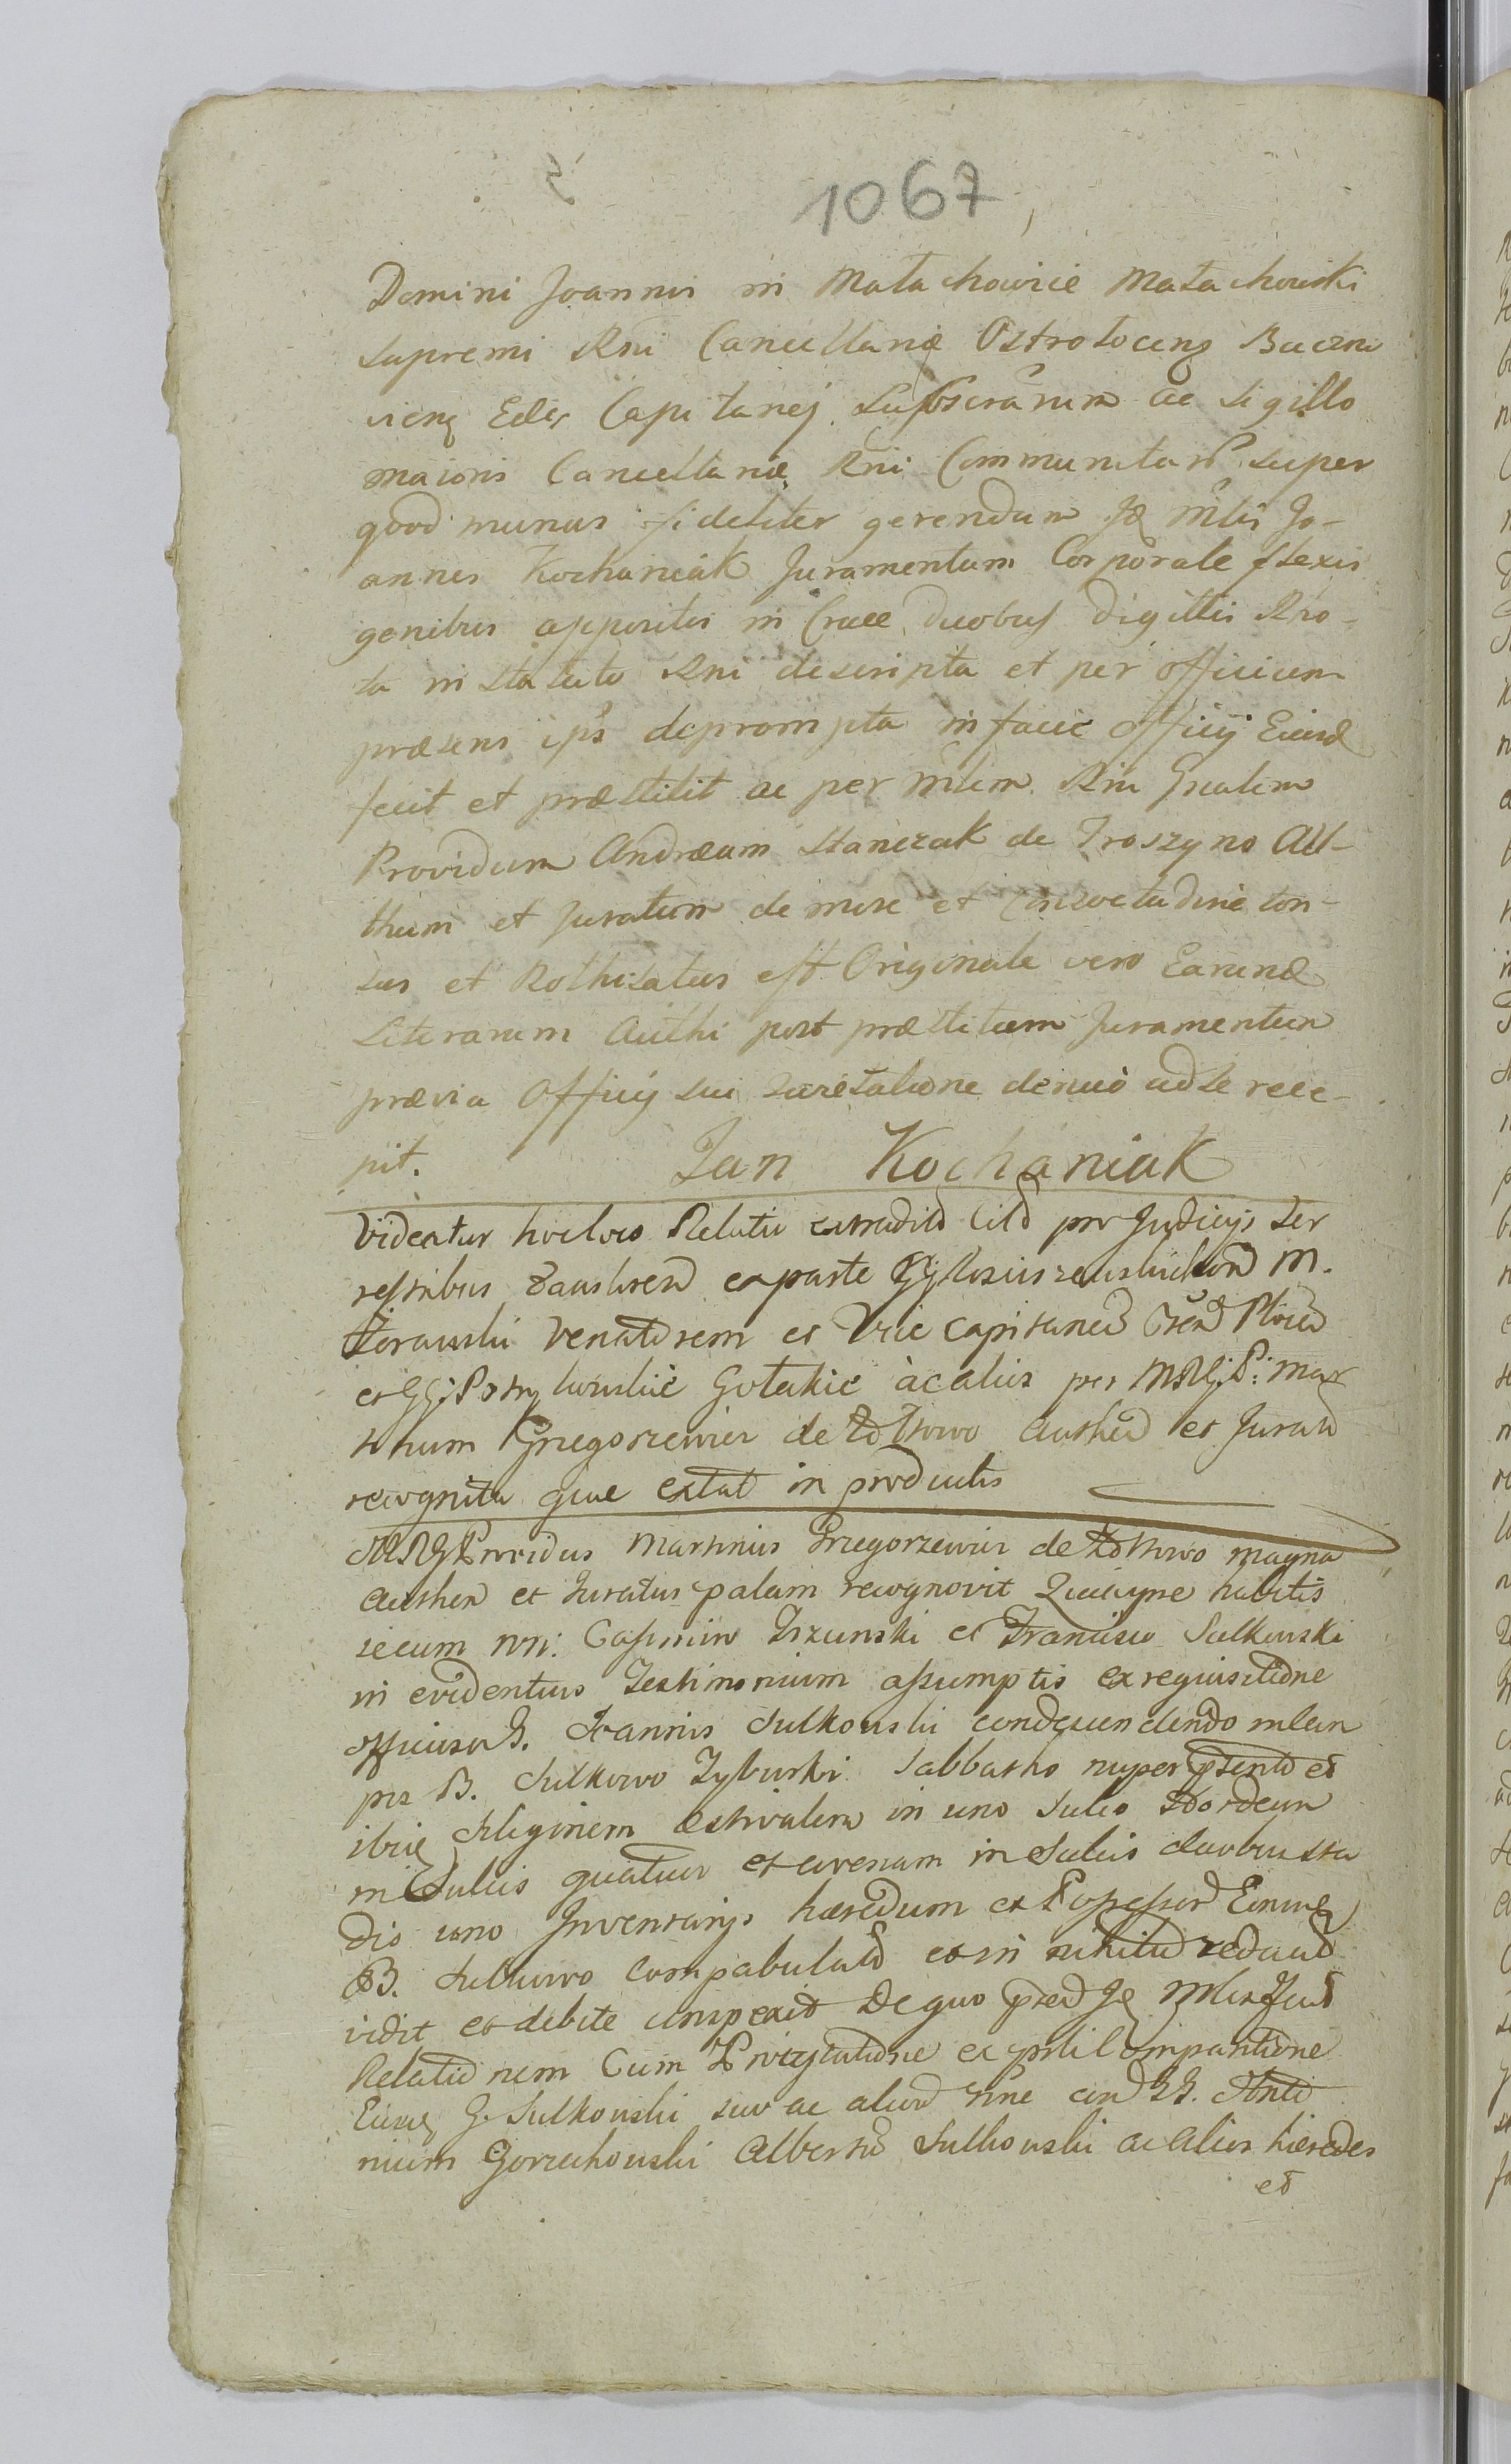 1067
Domini Joannis in Małachowice Małachowski
supremi Rni Cancellariæ Ostrołocens Buczno
viens Edis Capitanej subscrarum ac sigillo
maioris Cancellariæ Rni Communitar super
quod munus fideliter gerendum Je Mlis Jo-
annes Kochaniak Juramentum Corporale flexis
genibus appositis in Cruce duobus digittis Rho-
ta in Statuto Rni descripta et per officium
præsens ips deprompta in facie officij Eiusd
fecit et præstitit ac per Mlem Rni Gnalem
Providum Andræam Stanczak de Troszyno Aut-
thum et Juratum de more et consvetudine ton-
sus et Rothisatus est Originale vero Earund
Literarum Authi post præstitum Juramentum
prævia Officij sui quietatione denuò ad se rece-
pit. Jan Kochaniak
Videatur hocloco Relatio extradit Citt pro Judicijs Ter
restribus ex parte M.
Zorawski Venatorem et Vice Capitaneu
Gołakie ac alios per MRG: P: Mar
tinum Grzegorzewicz de Authen et Jurat
recognita quæ extat in productis
MRG Providus Martinus Grzegorzewicz de magna
Authen et Juratus palam recognovit Quia ipse habitis
secum NN: Casimiro et Francisco Sulkowski
in evidentius Testimonium assumptis ex requisitione
officiosa G. Joannis Sulkowski condescendendo mlem
prs B. Sulkowo Tyburki Sabbatho nuper et
ibiq Siliginem æstivalem in uno Sulco Hordeum
in Sulcis quatuor et avenam in Sulcis duobus sta
dio uno Inventarijs hæredum et Possessor Eorund
B. Sulkowo compabulat et in nihilu redact
vidit et debite conspexit De quo Je Mlis
Relationem Cum Protestatione ex Compartione
Eiusd G. Sulkowski suo ac alior nne con GG. Anto
nium Gorzechowski Albertu Sulkowski ac alios hæredes
et